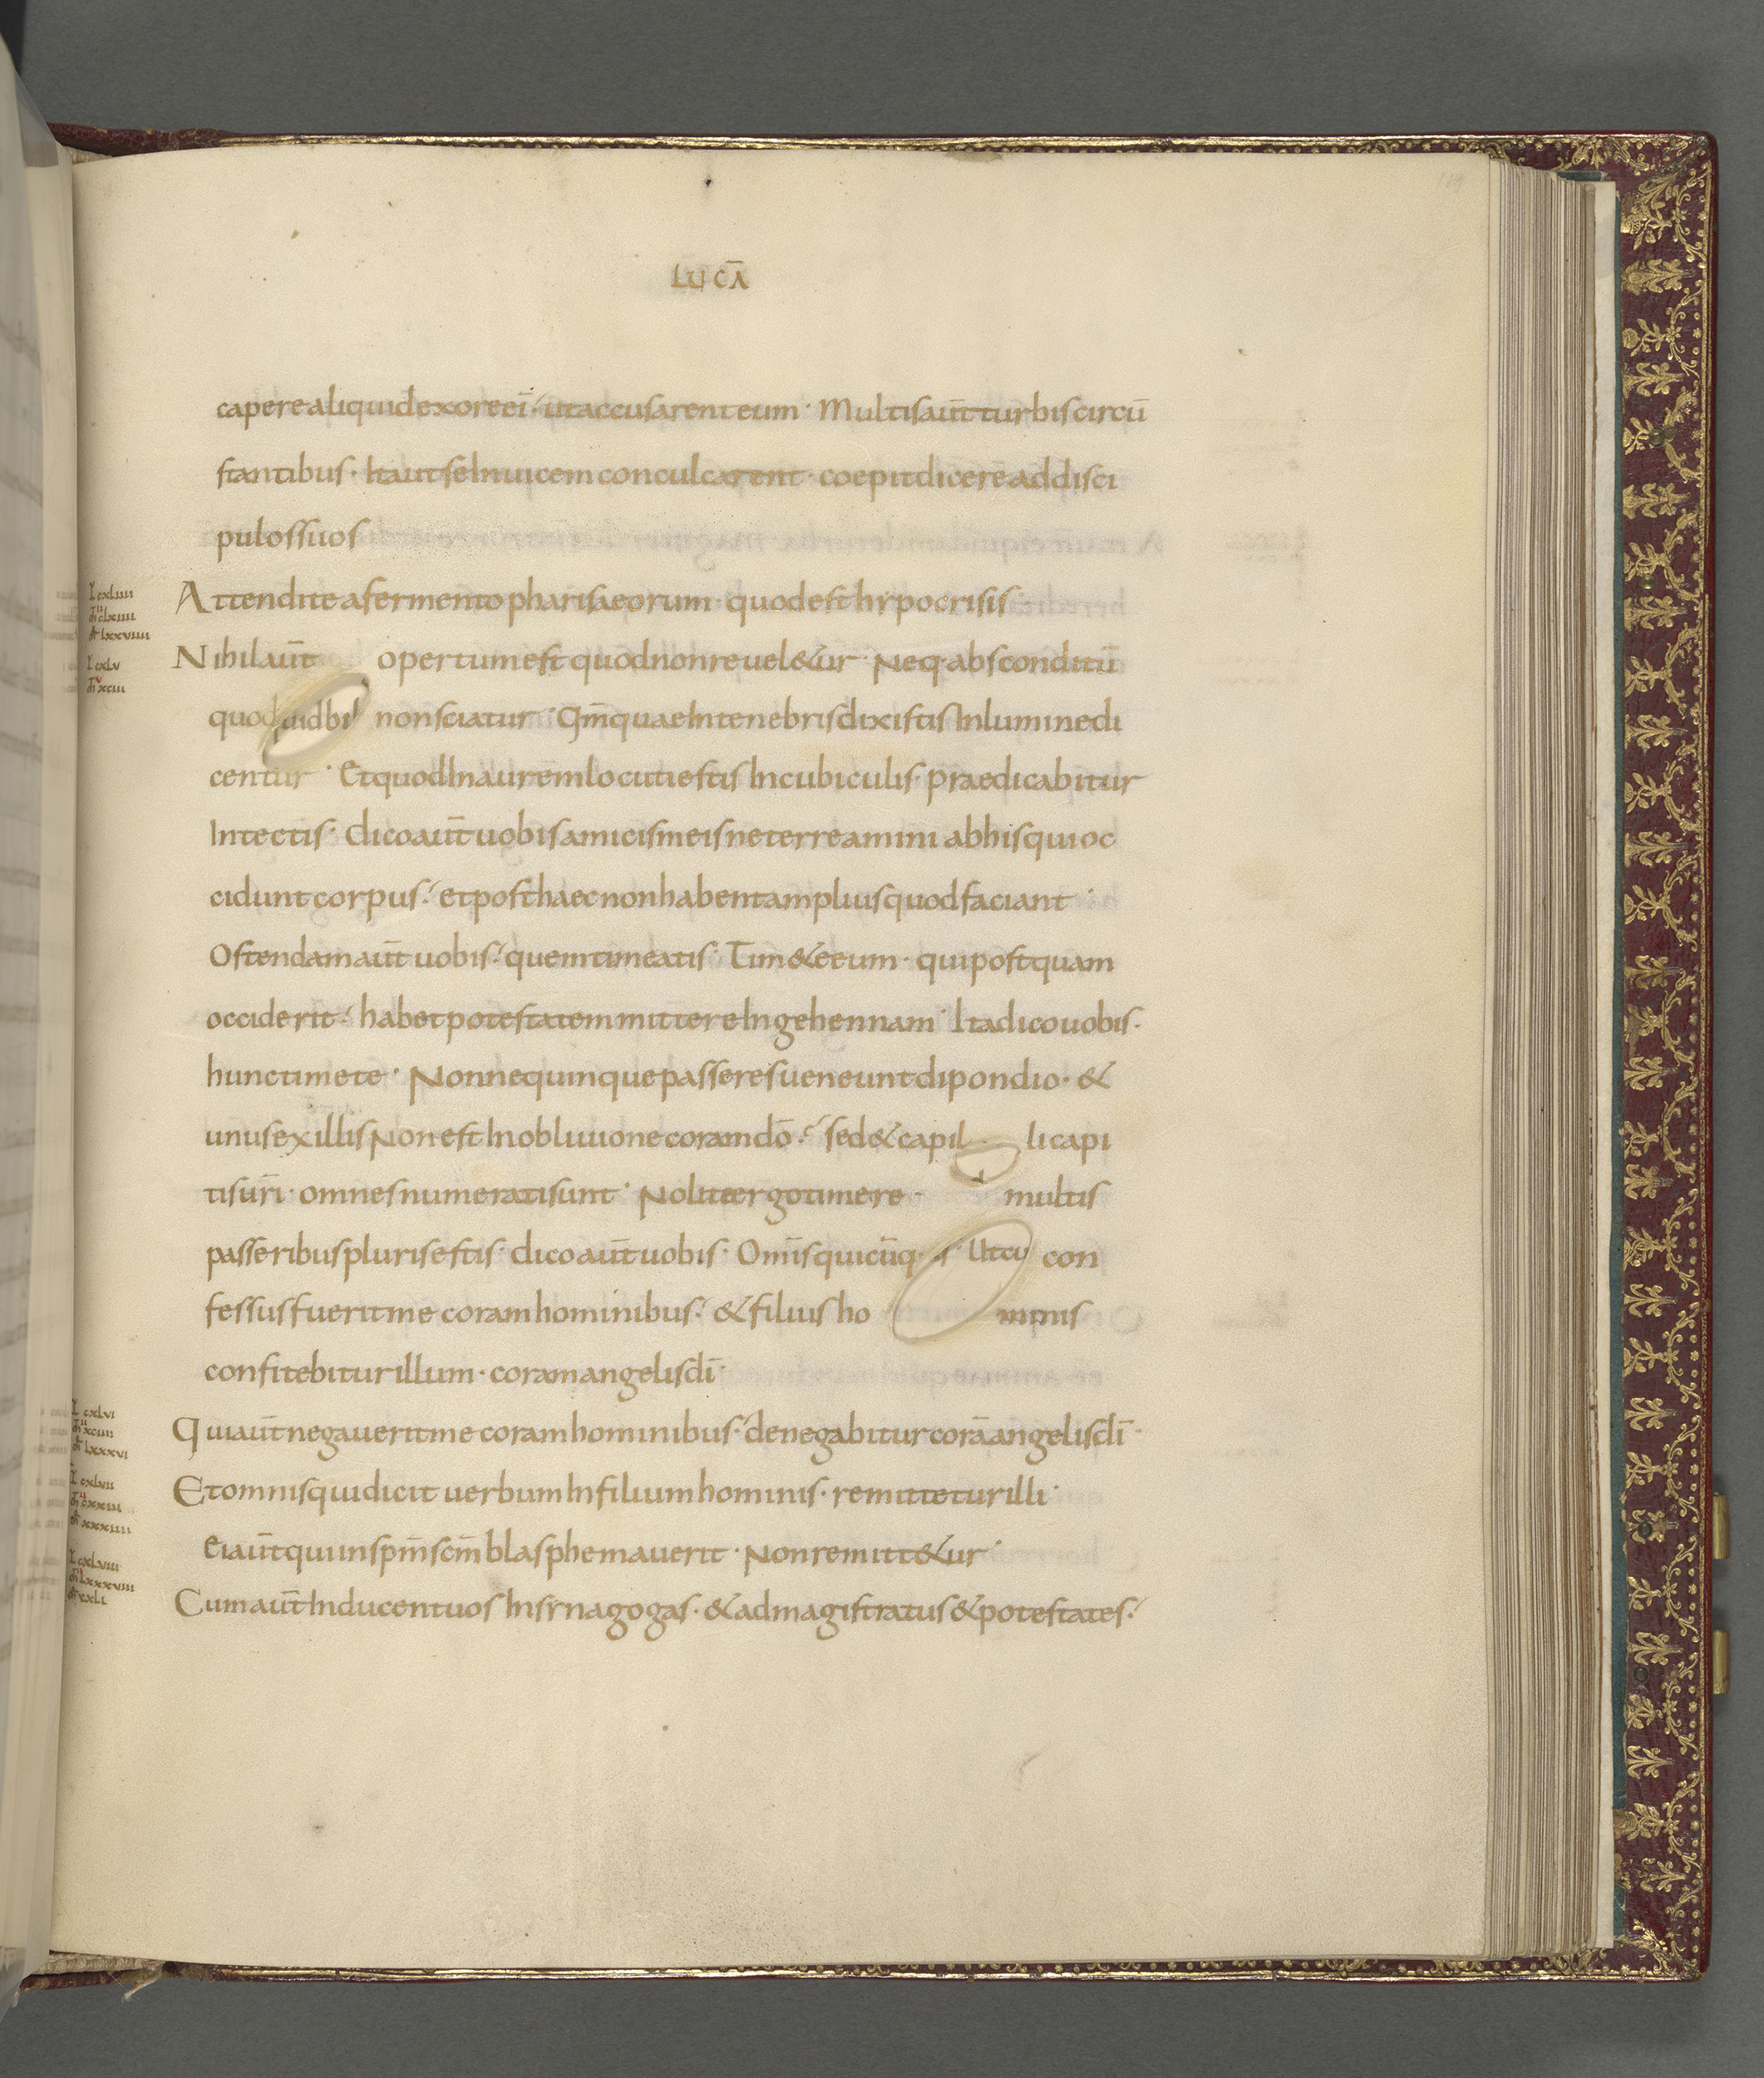 LUCĀ
capere aliquid ex ore ei̅ · ut accusarent eum · Multis aut̅ turbis circū
stantibus · Ita ut se Inuicem conculcarent · coepit dicere ad disci
pulos suos
Attendite a fermento pharisaeorum · quod est hypocrisis ·
Nihil aut̅ opertum est quod non reuel&ur · Neq· absconditū
quod non sciatur · Qm̅ quae In tenebris dixistis In lumine di
centur · Et quod In aurem locuti estis In cubiculis · praedicabitur
In tectis · dico aut̅ uobis amicis meis ne terreamini ab his qui oc
cidunt corpus · et post haec non habent amplius quod faciant ·
Ostendam aut̅ uobis · quem timeatis · Tim&e eum · qui postquam
occiderit · habet potestatem mittere In gehennam · Ita dico uobis ·
hunc timete · Nonne quinque passeres ueneunt dipondio · &
unus ex illis Non est In obliuione coram dō · sed & capil li capi
tis uri̅ · omnes numerati sunt · Nolite ergo timere · multis
passeribus pluris estis · dico aut̅ uobis · Omīs quicūq· con
fessus fuerit me coram hominibus · & filius ho minis
confitebitur illum · coram angelis di̅ ·
Qui aut̅ negauerit me coram hominibus · denegabitur corā angelis di̅ ·
Et omnis qui dicit uerbum In filium hominis · remittetur illi ·
Ei aut̅ qui in spm̅ scm̅ blasphemauerit · Non remitt&ur ·
Cum aut̅ Inducent uos In synagogas · & ad magistratus & potestates ·
L cxLiiii
L cxLv
L cxLvi
L cxLvii
L cxLviii